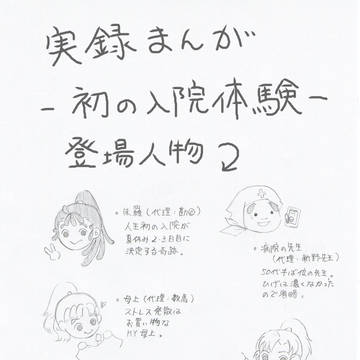 実録まんが
-初の入院体験-
登場人物
(代理・勘@)
人生初の入院が
夏休み2・3日目に
決定する奇跡。
・病院の先生
(代理・新野先生)
50代そば位の先生。
ひげは濃くなかった
ので省略。
・母上(代理・数馬)
ストレス発散は
お買い物な
MY母上。